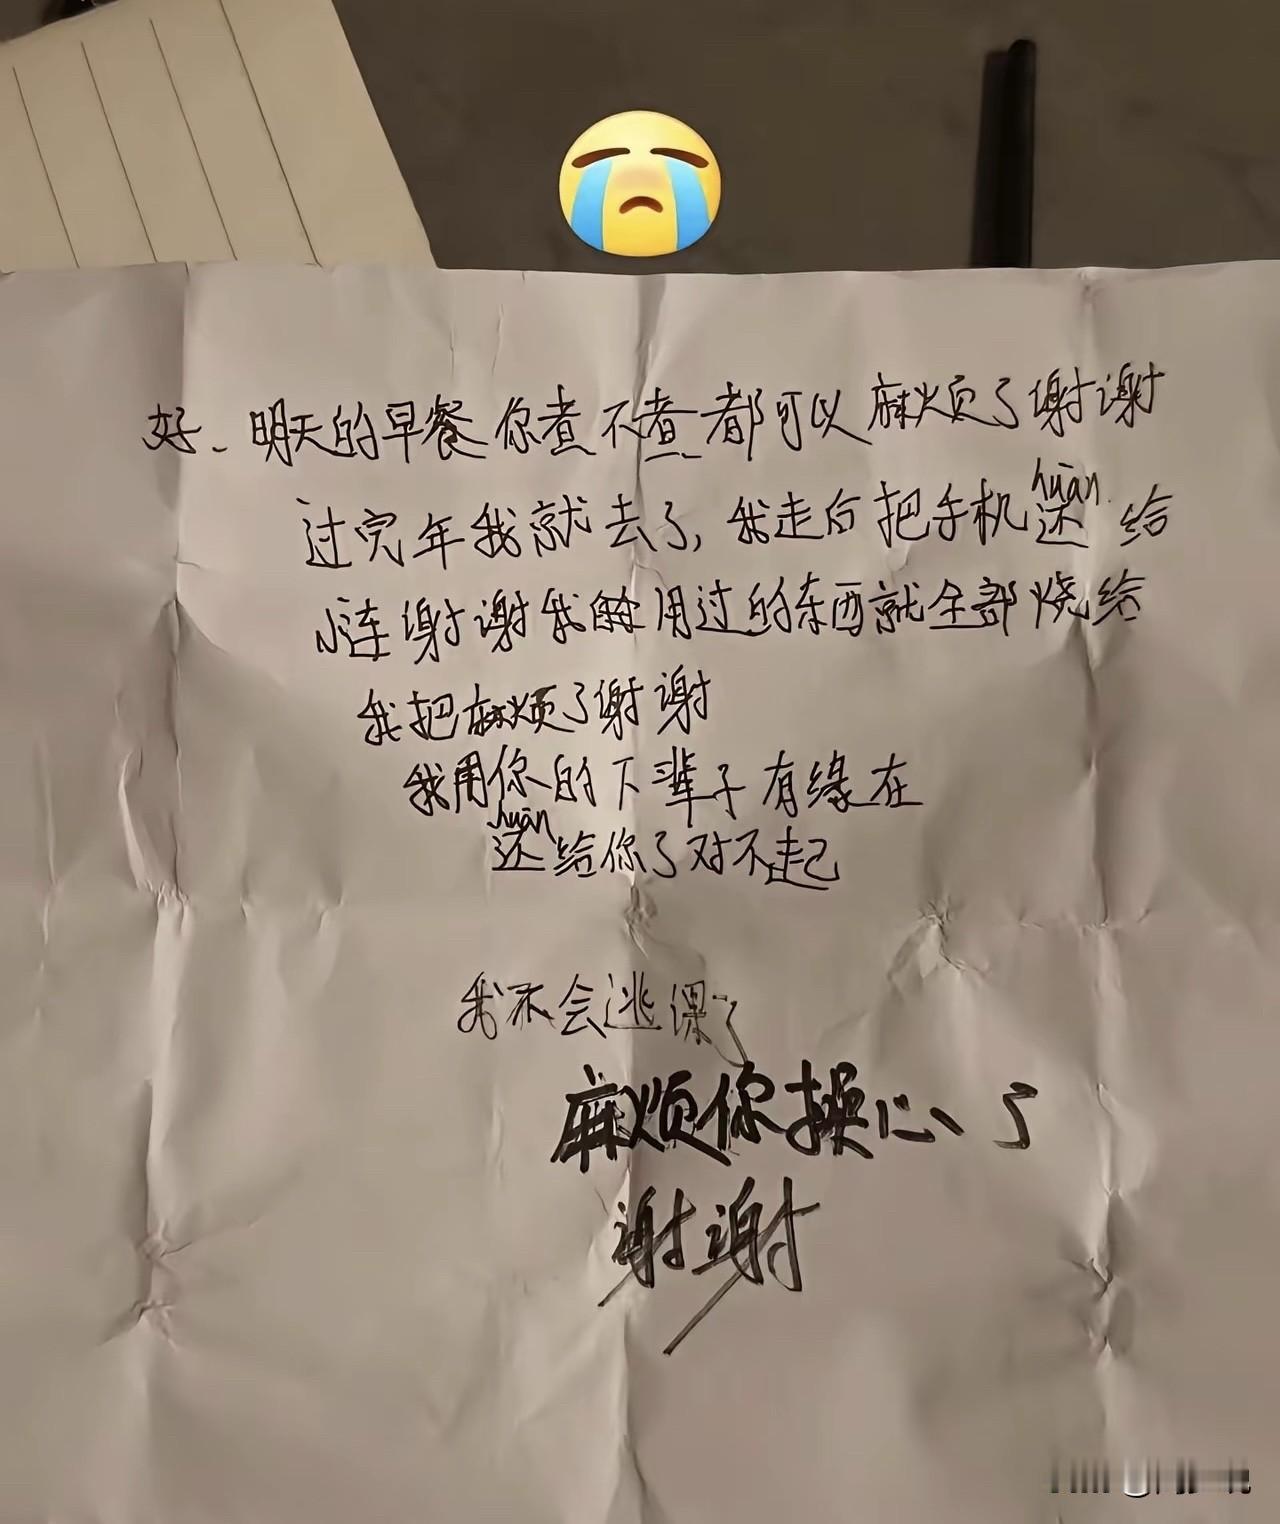 好、明天的早餐你煮不煮都可以麻烦了谢谢
huān
过完年我就去了,我走后把手机还给
小连谢谢我的用过的东西就全部烧给
我把麻烦了谢谢
我用你的下辈子有缘在
huān
还给你了对不起
我不会逃课了
麻烦你操心了
谢谢